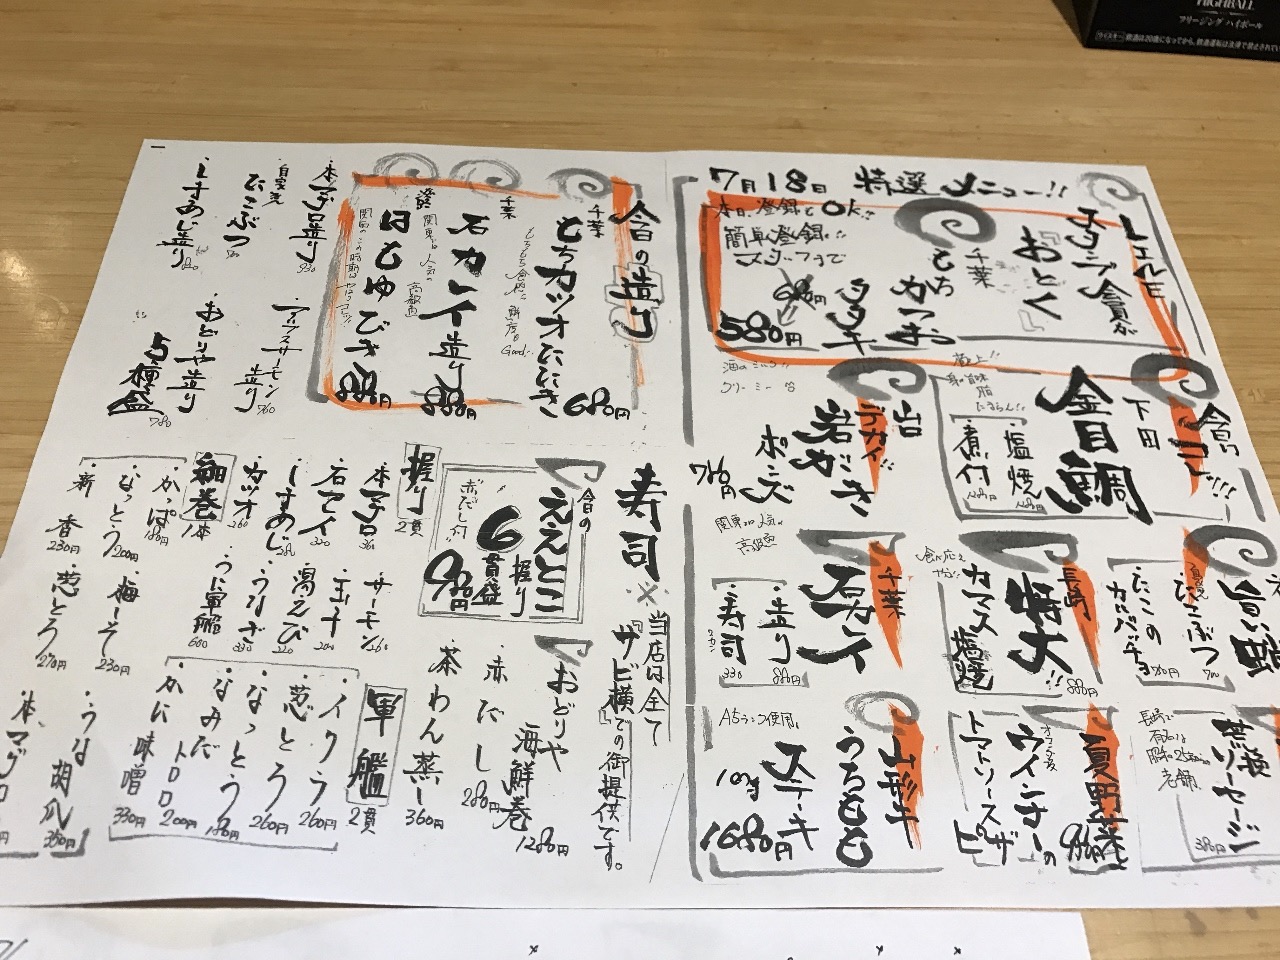 HIGHBALL
フリージング ハイボール
7月18日 特選メニュー!!
スタンプ会員が
『おとく』
本日、登録もOK!!
簡単登録!!
スタッフまで
千葉
もちかつお
タタキ
680円
580円
今日イチ
コレ!!!
下田
金目鯛
塩焼
煮付
デカイ!!
岩がき
ポン酢
780円
千葉
石カレイ
関東は人気の
高級魚
造り
880円
寿司
2カン
330
長崎
特大!!
カマス
塩焼
880円
食べ応え
旨い蛸
たこぶつ
700
たこの
カルパッチョ
780円
山形牛
うちもも
ステーキ
A5ランク使用
100g
1680円
夏野菜と
ウインナーの
トマトソース
ピザ
980円
燻ソーセージ
長崎で
有名な
老舗
380円
今日の造り
千葉
もちカツオたたき
もちもち食感に
鮮度も
Good!
680円
千葉
石カレイ造り
関東は人気の
高級魚
880円
淡路
はもゆびき
関西のこの時期はやはりコレ!!
880円
本マグロ造り
930
自家製
たこぶつ
700
しまあじ造り
アトランサーモン
造り
760
おどりや造り
5種盛
980
寿司
※当店は全て
『サビ横』での御提供です。
今日の
ええとこ
6貫盛
握り
赤だし付
980円
おどりや
海鮮巻
1280円
赤だし
280円
茶わん蒸し
360円
握り
2貫
本マグロ
360
石カレイ
330
しまあじ
380
カツオ
260
サーモン
260
玉子
200
潟えび
220
うなぎ
330
うに軍艦
600
細巻
1本
かっぱ
180円
なっとう
200円
新香
230円
梅しそ
230円
葱とろ
270円
うな胡瓜
350円
本マグロ
軍艦
2貫
イクラ
260円
葱とろ
260円
なっとう
180円
なみだ
トロロ
200円
かに味噌
330円